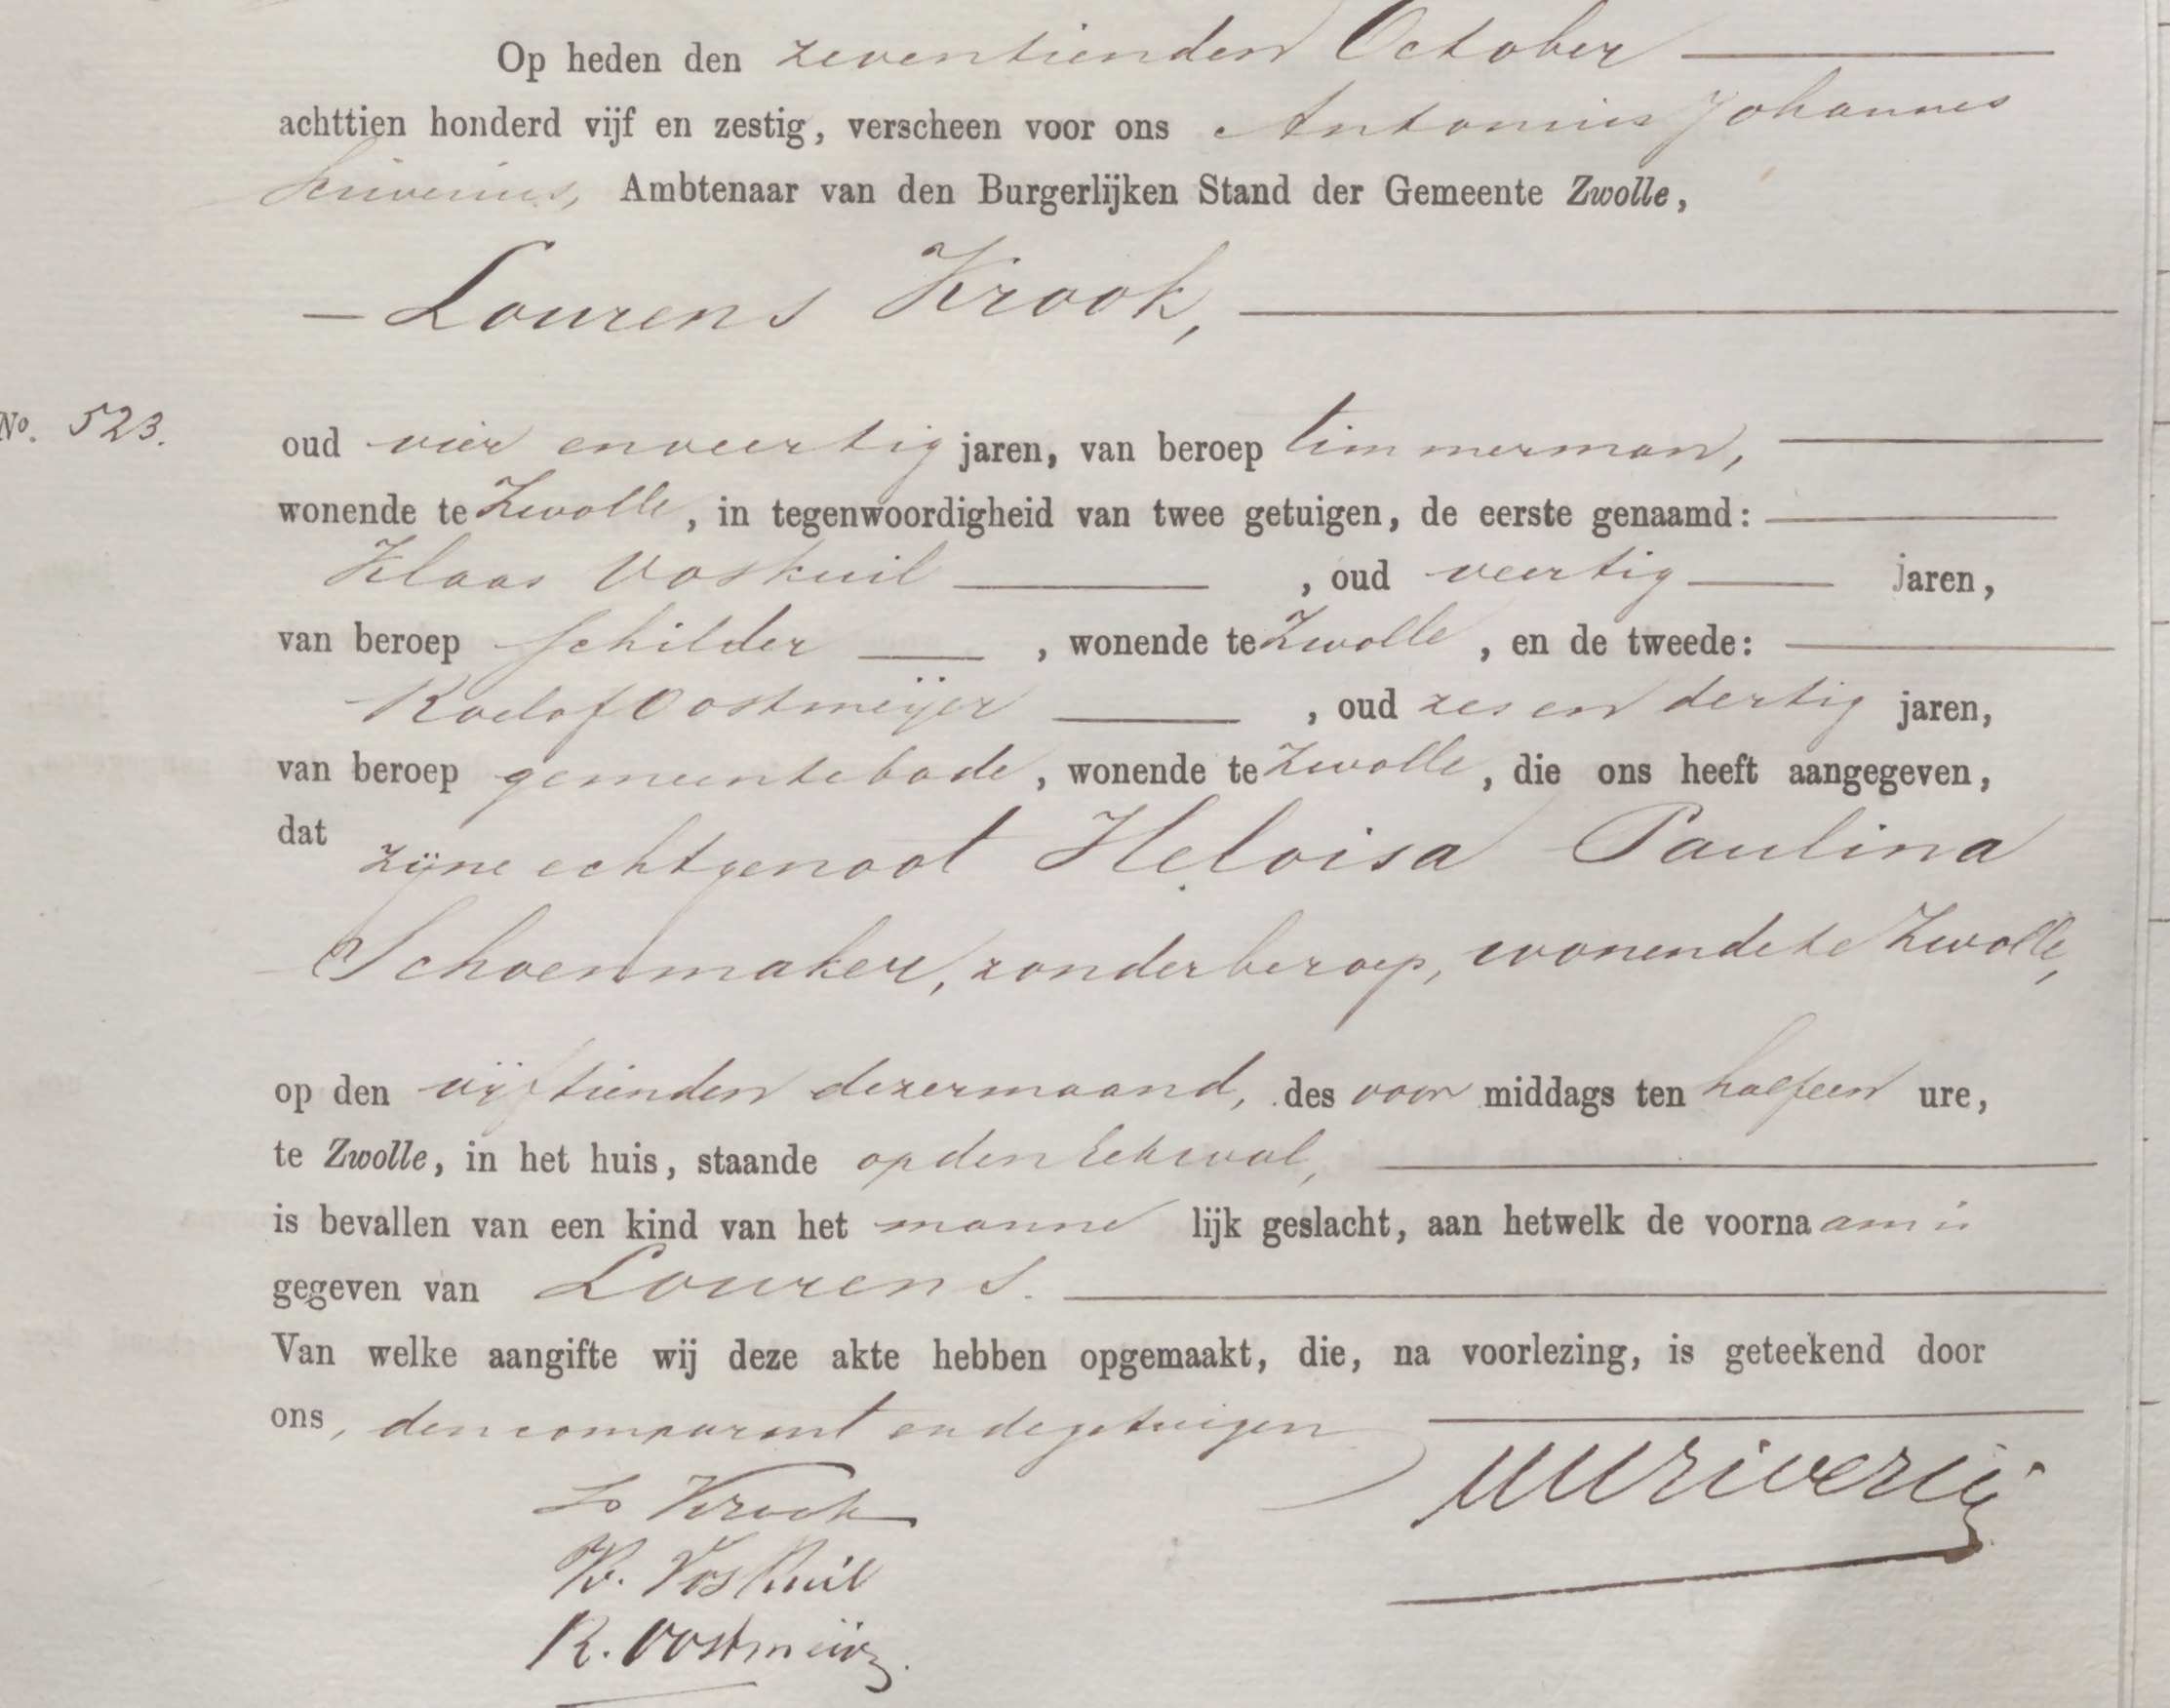 Op heden den zeventienden October
achttien honderd vijf en zestig, verscheen voor ons Antonius Johannes
Scriverius, Ambtenaar van den Burgerlijken Stand der Gemeente Zwolle,
– Lourens Krook,
No. 523.
oud vier en veertig jaren, van beroep timmerman,
wonende te Zwolle, in tegenwoordigheid van twee getuigen, de eerste genaamd:
Klaas Voskuil, oud veertig jaren,
van beroep schilder, wonende te Zwolle, en de tweede:
Roelof Oostmeijer, oud zes en dertig jaren,
van beroep gemeentebode, wonende te Zwolle, die ons heeft aangegeven,
dat zijne echtgenoot Heloisa Paulina
Schoenmaker, zonder beroep, wonende te Zwolle,
op den vijftienden dezer maand, des voor middags ten half een ure,
te Zwolle, in het huis, staande op den Eekwal,
is bevallen van een kind van het manne lijk geslacht, aan hetwelk de voornaam is
gegeven van Lourens.
Van welke aangifte wij deze akte hebben opgemaakt, die, na voorlezing, is geteekend door
ons, den comparant en de getuigen
Ls Krook
K. Voskuil
R. Oostmeijer.